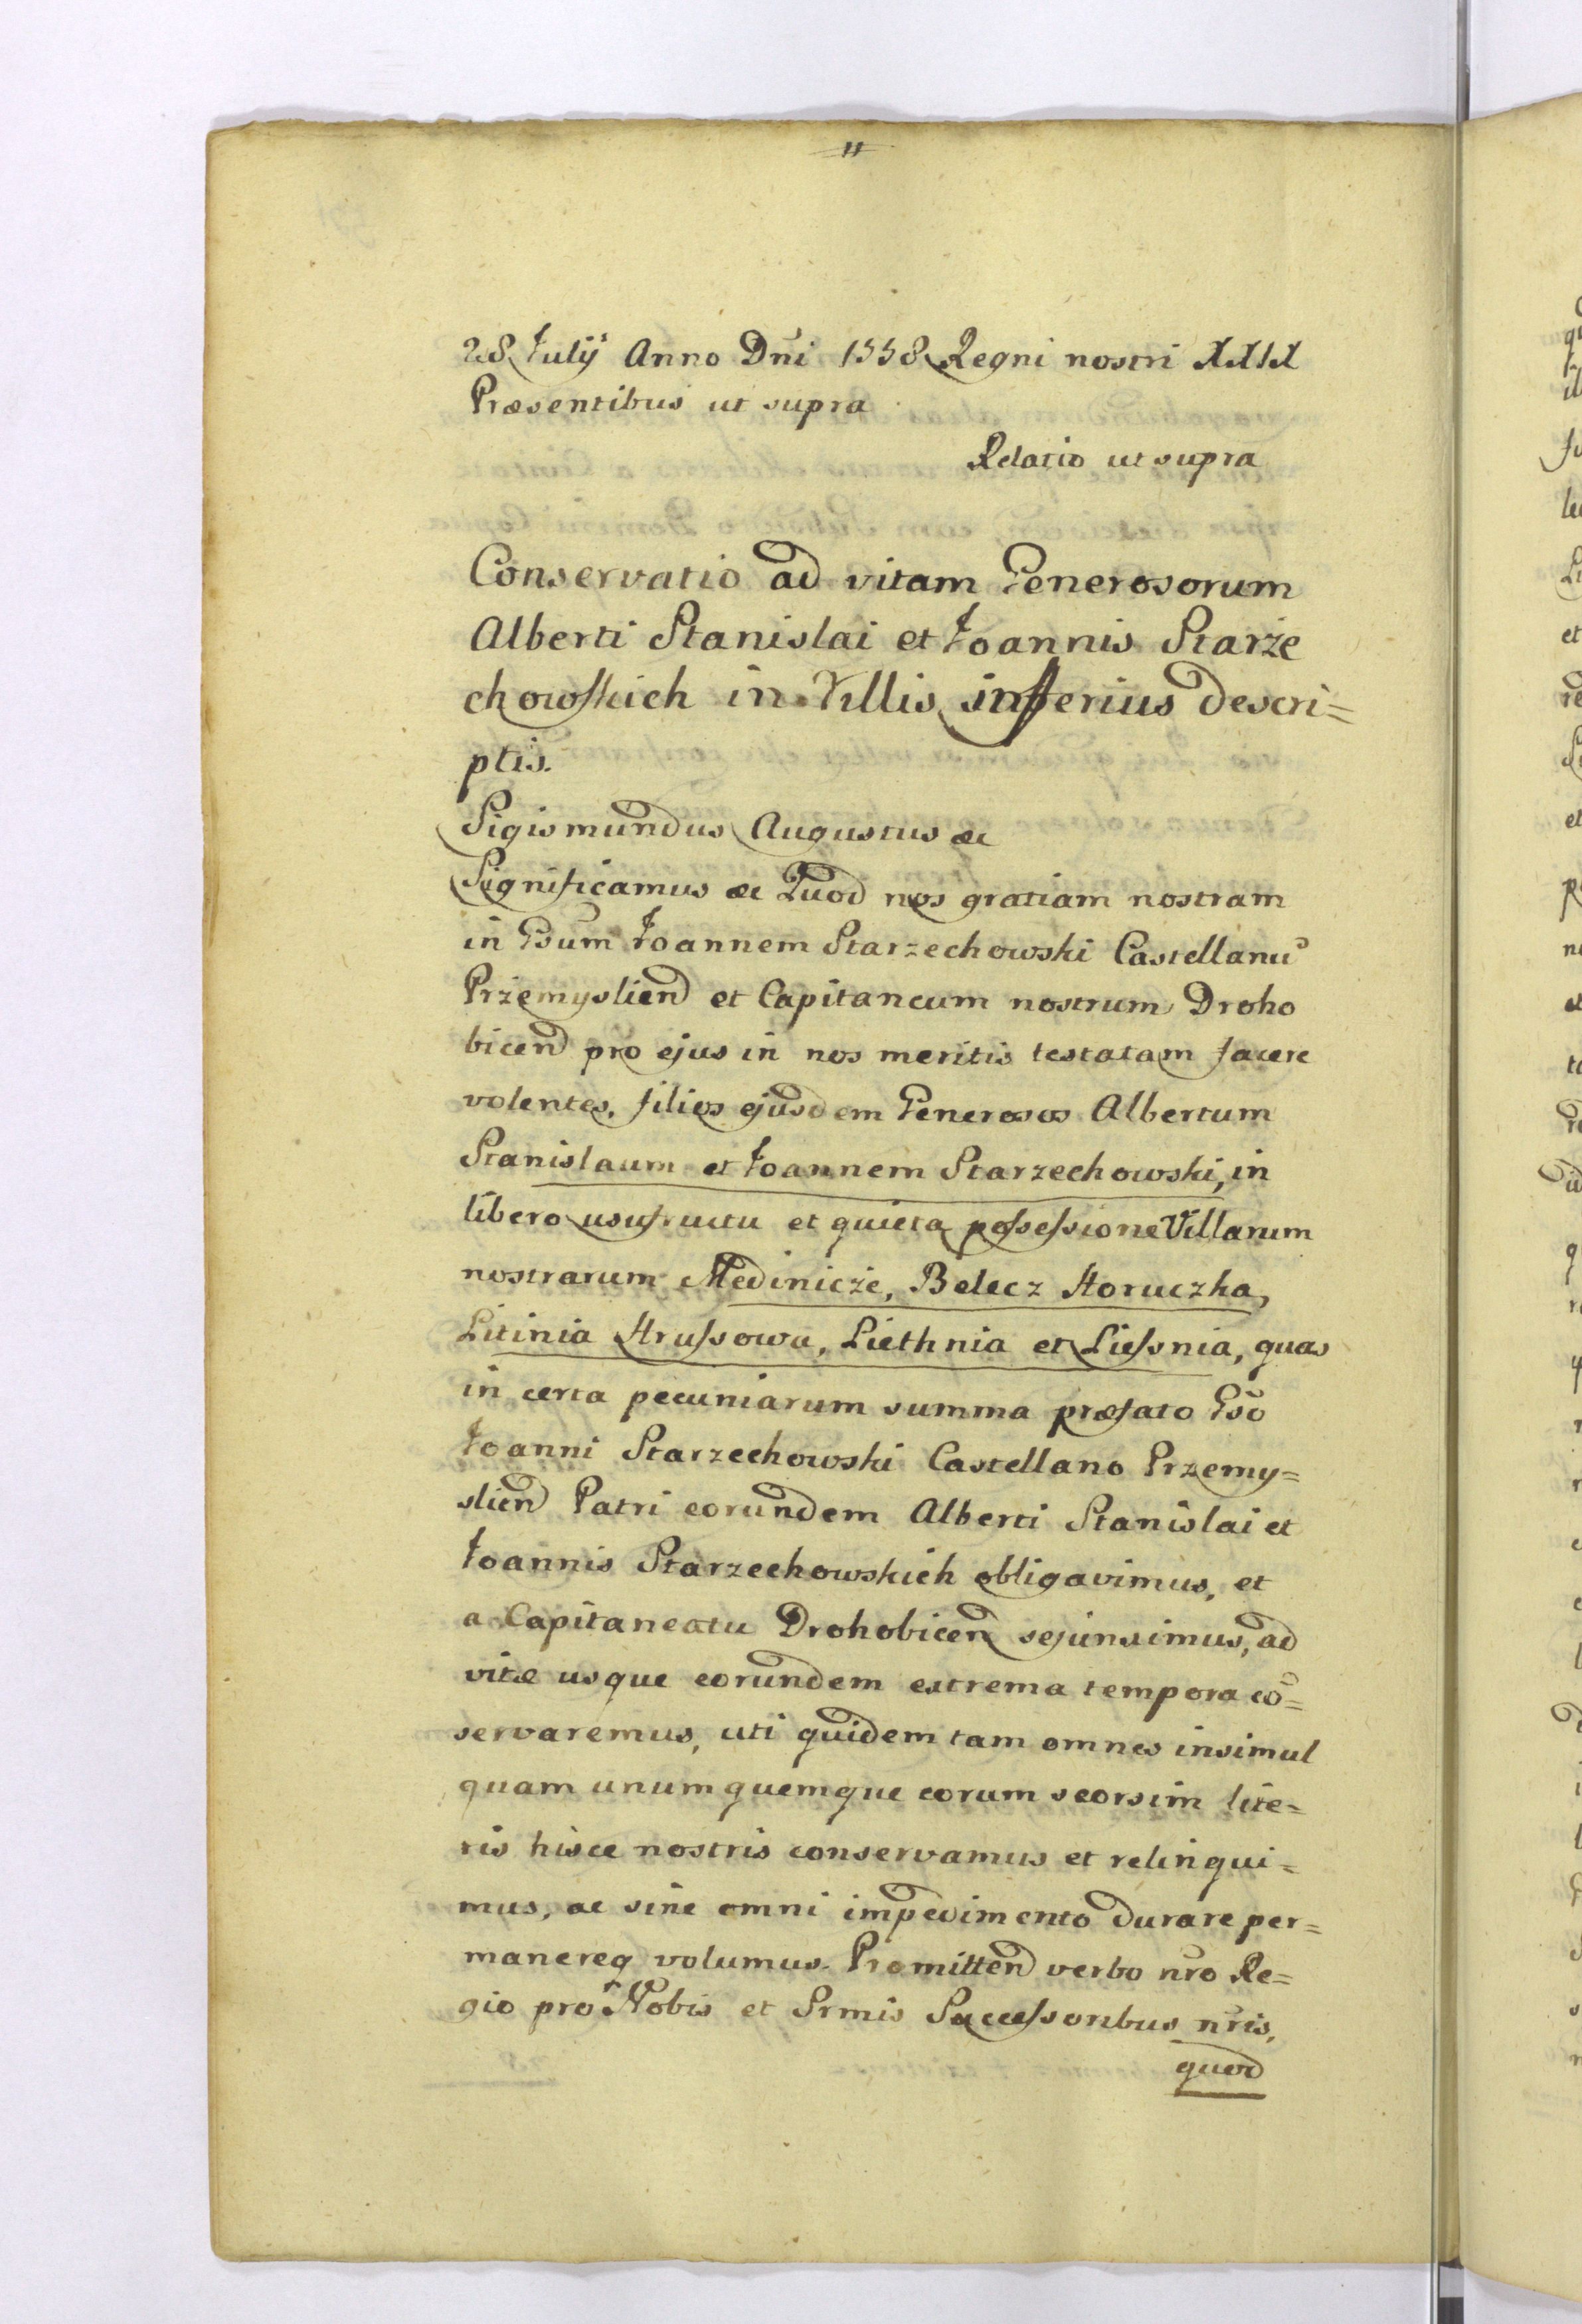 11
28 Julÿ Anno Dni 1558 Regni nostri XXIX
Præsentibus ut supra
Relatio ut supra
Conservatio ad vitam Generosorum
Alberti Stanislai et Joannis Starze
chowskich in Villis inferius descri=
ptis.
Sigismundus Augustus &c
Significamus &c Quod nos gratiam nostram
in Gsum Joannem Starzechowski Castellanū
Przemyslien et Capitaneum nostrum Droho
bicen pro ejus in nos meritis testatam facere
volentes, filios ejusdem Generosos Albertum
Stanislaum et Joannem Starzechowski, in
libero usufructu et quieta possessione Villarum
nostrarum Medinicze, Belecz Horuczka,
Litinia Hrussowa, Liethnia et Liessnia, quas
in certa pecuniarum summa præfato Gso
Joanni Starzechowski Castellano Przemy=
slien Patri eorundem Alberti Stanislai et
Joannis Starzechowskich obligavimus, et
a Capitaneatu Drohobicen sejunximus, ad
vitæ usque eorundem extrema tempora cō=
servaremus, uti quidem tam omnes insimul
quam unumquemque eorum seorsim lite=
ris hisce nostris conservamus et relinqui=
mus, ac sine omni impedimento durare per=
manereq volumus. Promitten verbo nro Re=
gio pro Nobis et Srmis Successoribus nris,
quod